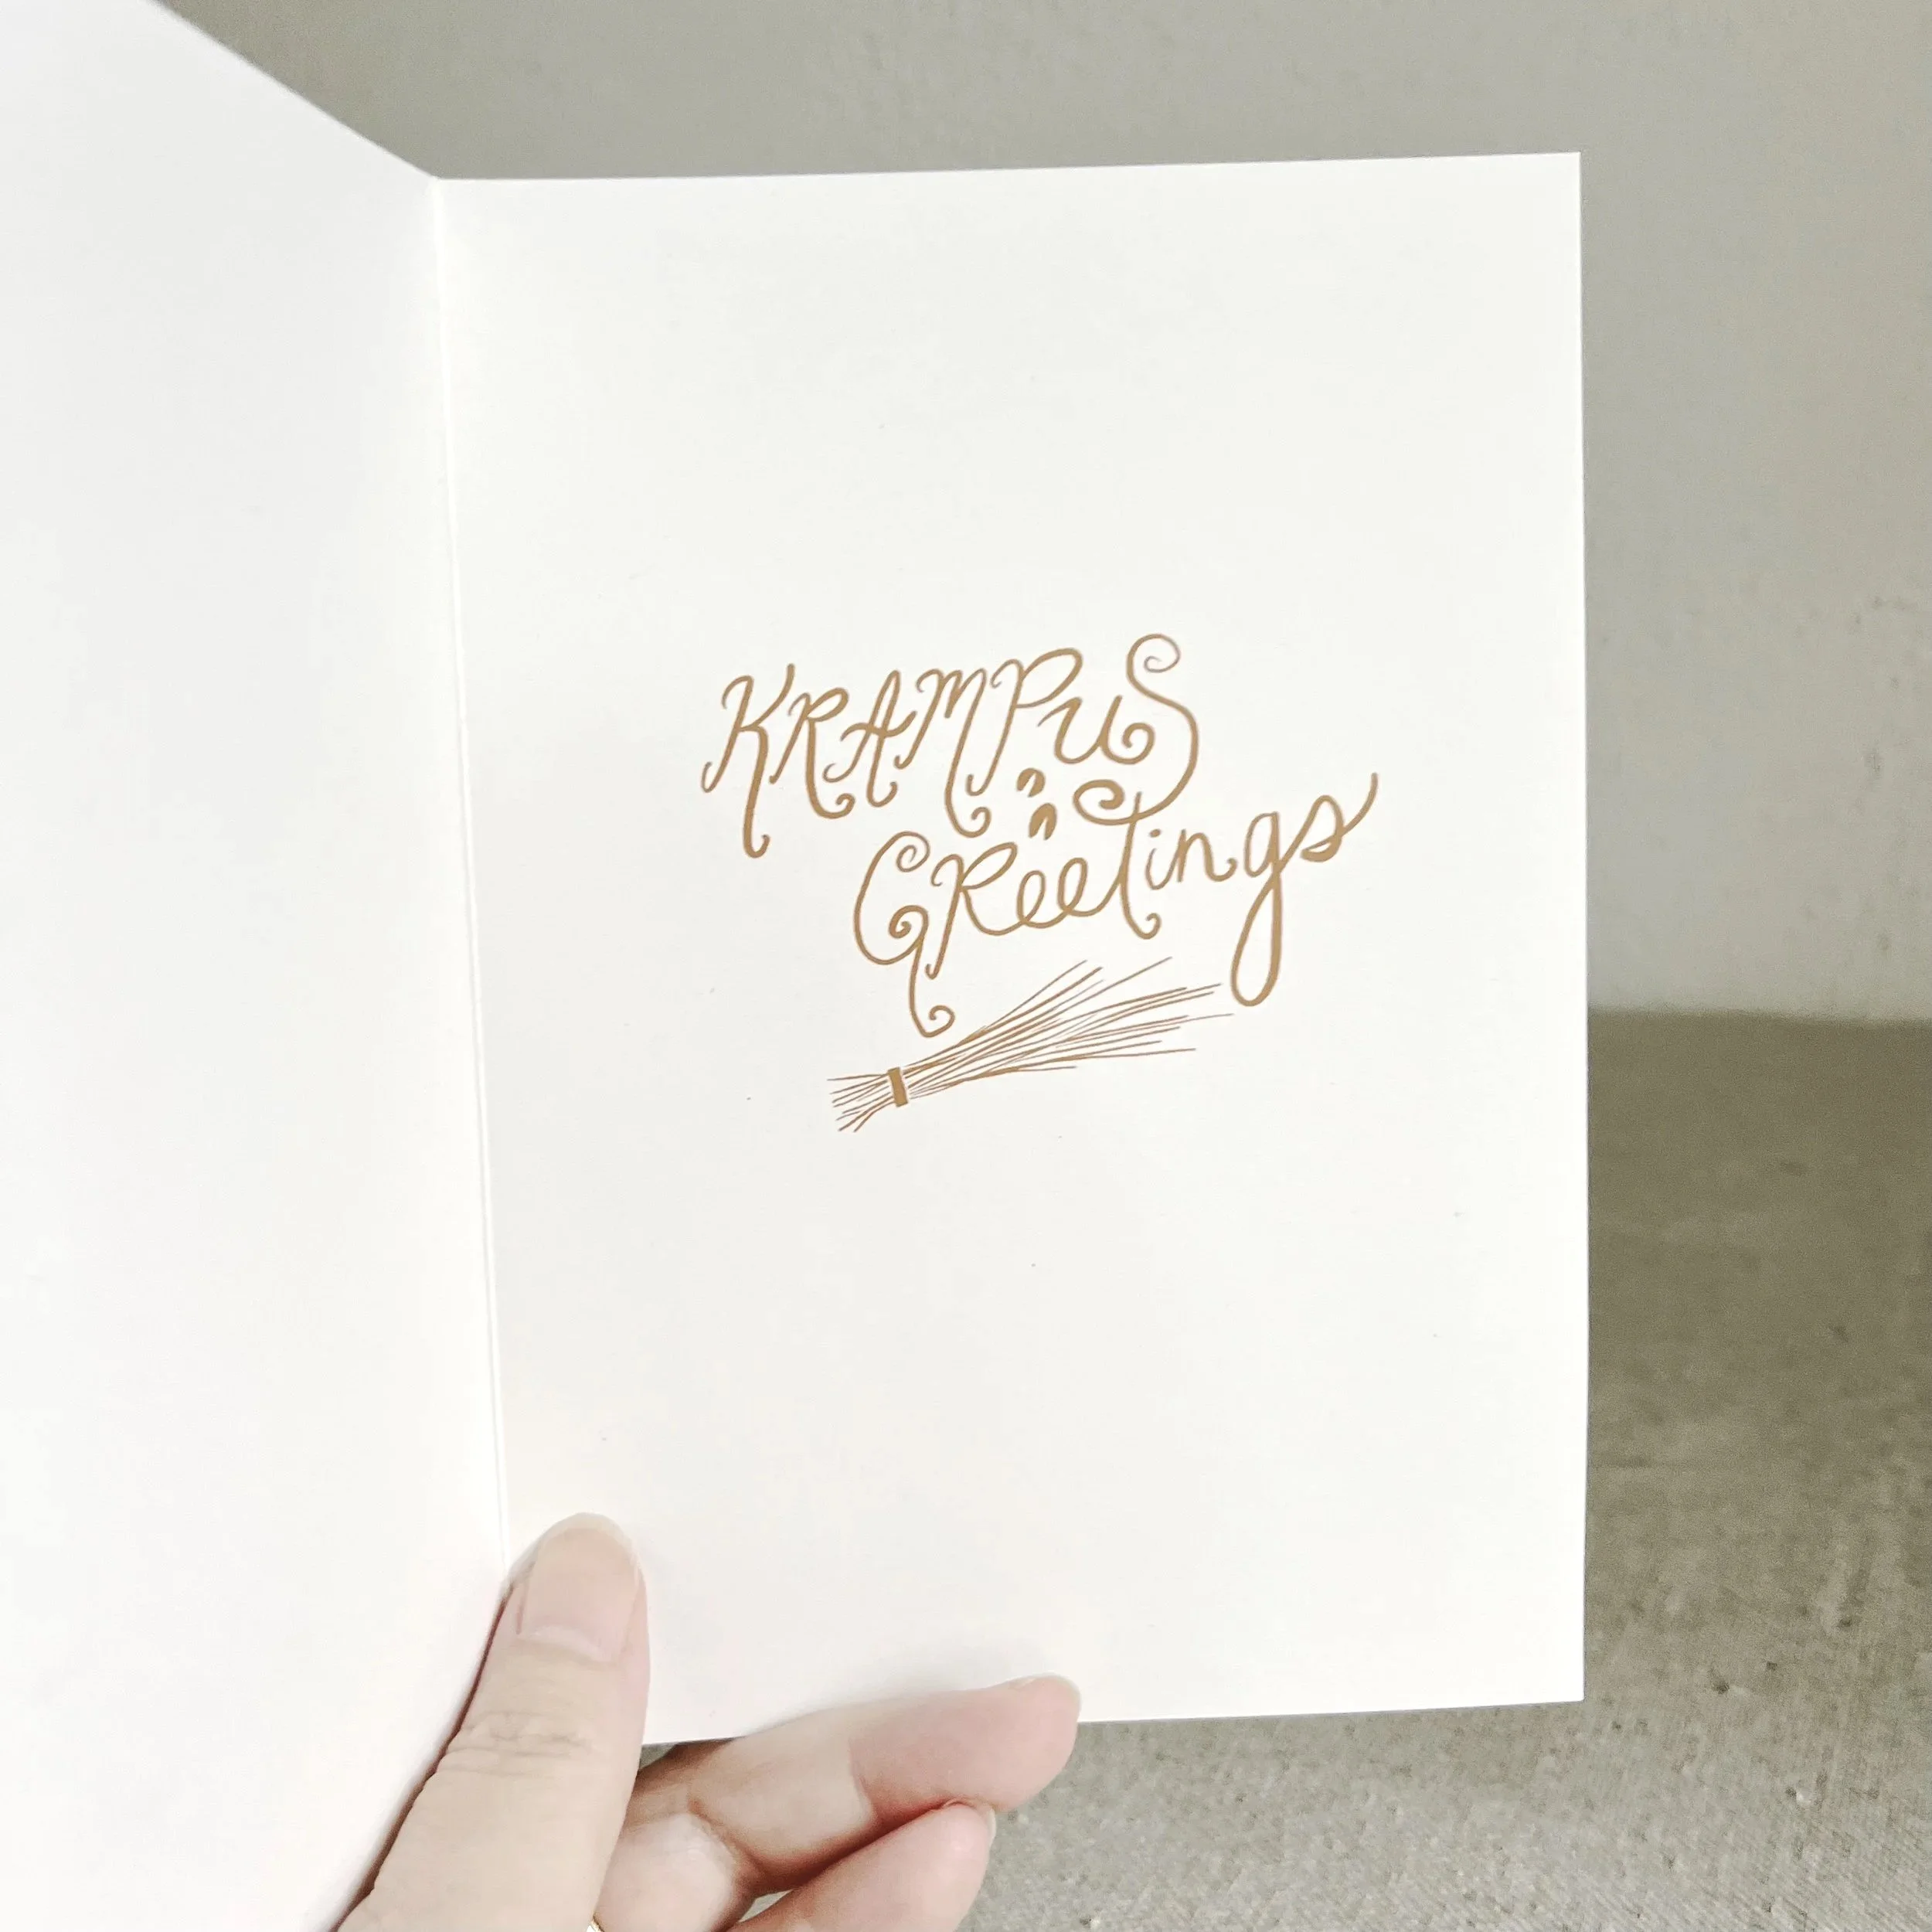 KRAMPUS
GReetings